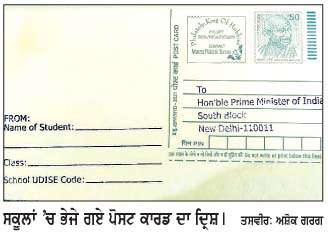 Philately, King Of Hobbies
50
POST CARD
FROM:
Name of Student:
Class:
School UDISE Code:
To
Hon'ble Prime Minister of India
South Block
New Delhi-110011
ਸਕੂਲਾਂ 'ਚ ਭੇਜੇ ਗਏ ਪੋਸਟ ਕਾਰਡ ਦਾ ਦ੍ਰਿਸ਼। ਤਸਵੀਰ: ਅਸ਼ੋਕ ਗਰਗ